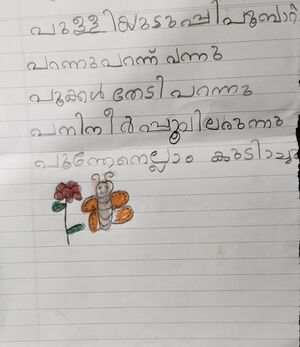 പുള്ളിയുടുപ്പിട്ട പൂമ്പാറ്റ
പറന്നു പറന്ന് വന്നു
പൂക്കൾ തേടി പറന്നു
പനിനീർപ്പൂവിലരുന്നു
പുന്തേനെല്ലാം കുടിച്ചു